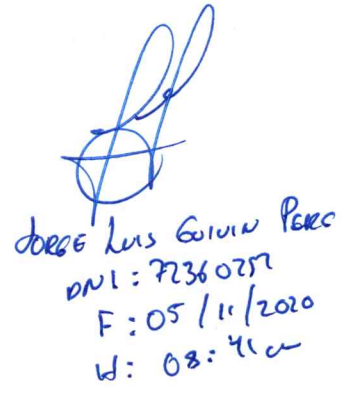 JORGE LUIS GUIVIN PERE
DNI: 72360252
F: 05/11/2020
H: 08:41 a